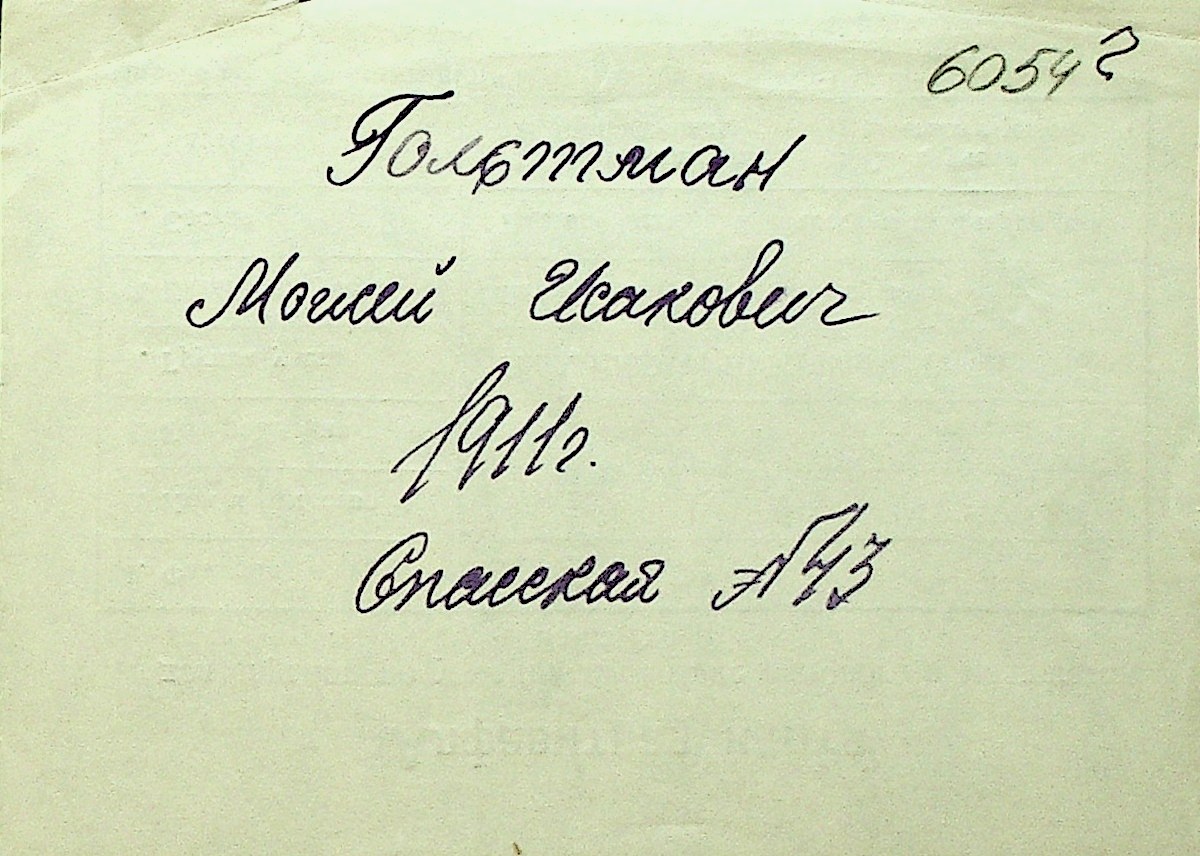 6054?
Гольтман
Моисей Исакович
1911г.
Спасская №43